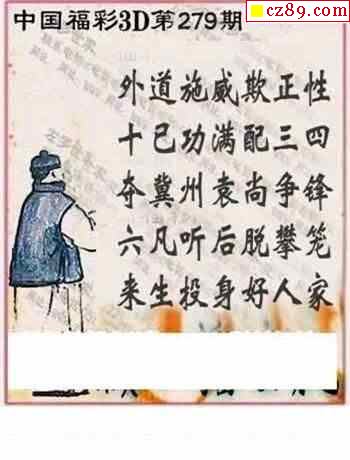 cz89.com
中国福彩3D第279期
外道施威欺正性
十已功满配三四
夺冀州袁尚争锋
六凡听后脱攀笼
来生投身好人家